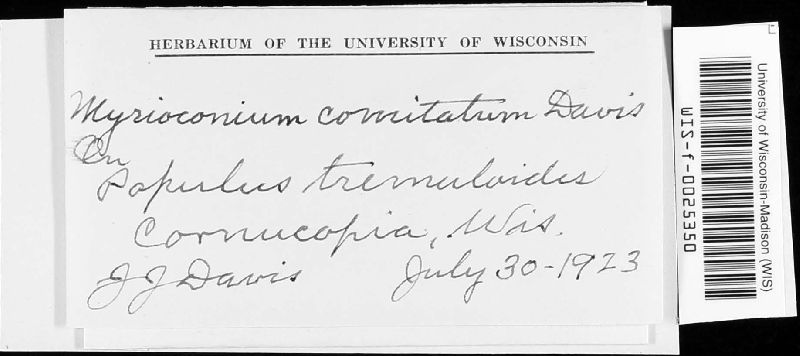 HERBARIUM OF THE UNIVERSITY OF WISCONSIN
Myrioconium comitatum Davis
On
Populus tremuloides
Cornucopia, Wis.
J J Davis July 30-1923
University of Wisconsin-Madison (WIS)
WIS-f-0025350